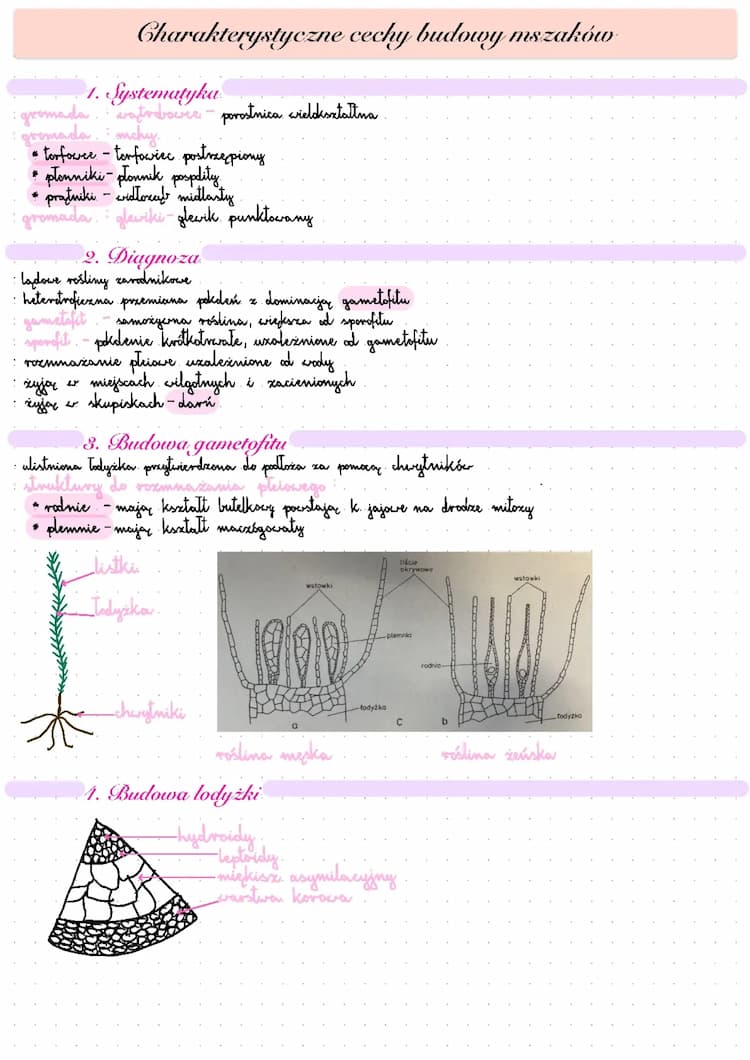 Charakterystyczne cechy budowy mszaków
1. Systematyka
gromada : wątrobowce - porostnica wielokształtna
gromada : mchy
* torfowce - torfowiec postrzępiony
* płonniki - płonnik pospolity
* prątniki - widłoząb miotlasty
gromada : glewiki - glewik punktowany
2. Diagnoza
· lądowe rośliny zarodnikowe
· heterotroficzna przemiana pokoleń z dominacją gametofitu
gametofit - samożywna roślina, większa od sporofitu
sporofit - pokolenie krótkotrwałe, uzależnione od gametofitu
· rozmnażanie płciowe uzależnione od wody
· żyją w miejscach wilgotnych i zacienionych
· żyją w skupiskach - darń
3. Budowa gametofitu
· ulistniona łodyżka przytwierdzona do podłoża za pomocą chwytników
· struktury do rozmnażania płciowego :
* rodnie - mają kształt butelkowy powstają k. jajowe na drodze mitozy
* plemnie - mają kształt maczugowaty
listki
łodyżka
chwytniki
wstowki
liście okrywowe
wstowki
plemnia
rodnia
łodyżka
łodyżka
a
C
b
roślina męska
roślina żeńska
4. Budowa lodyżki
hydroidy
leptoidy
miękisz asymilacyjny
warstwa korowa